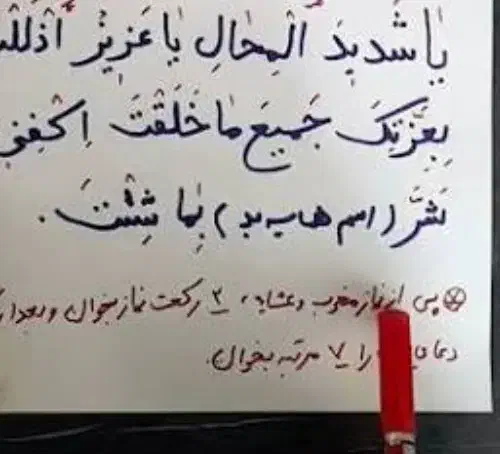 یٰا شَدیدَ الْمِحٰالِ یٰا عَزیزُ اَذْلَلْتَ
بِعِزَّتِکَ جَمیعَ مٰا خَلَقْتَ اِکْفِنی
شَرَّ (اسم هاب بد) بِمٰا شِئْتَ.
※ پس از نماز مغرب و عشاء، ۲ رکعت نماز بخوان و بعد از
دعای را ۷ مرتبه بخوان.